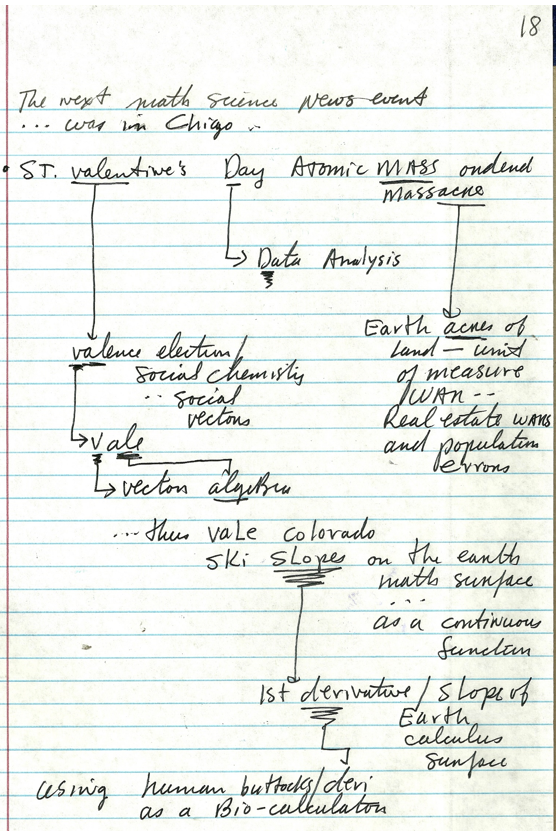 18
The next math science news event
... was in Chigo ..
• ST. valentine's Day Atomic MASS ondend
Massacre
Data Analysis
Earth acres of
Land — unit
of measure
WAR --
Real estate WARS
and population
errors
valence election/
Social chemistry
.. social
vectors
vale
vector algebra
... thus vale colorado
ski slopes on the earth
math surface
. . .
as a continuous
function
1st derivative / slope of
Earth
calculus
surface
using human buttocks/deri
as a Bio-calculator